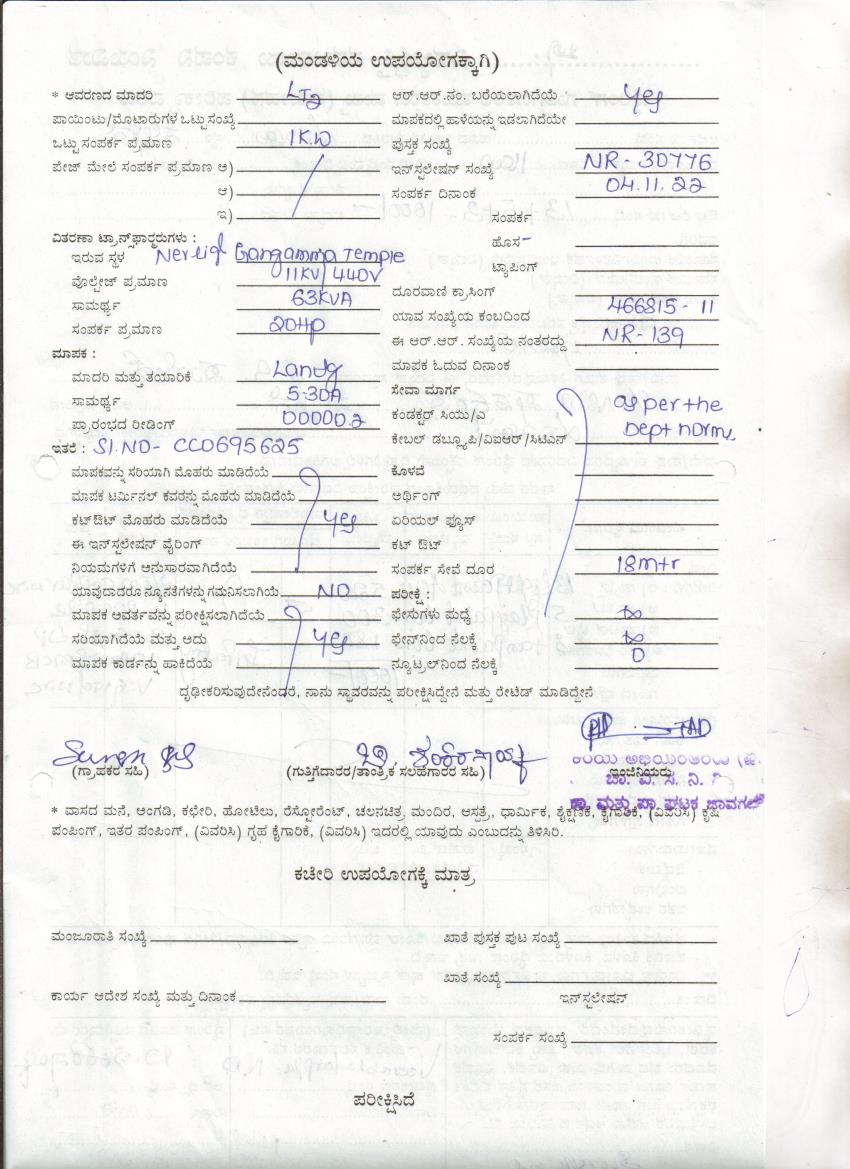 (ಮಂಡಳಿಯ ಉಪಯೋಗಕ್ಕಾಗಿ)
* ಆವರಣದ ಮಾದರಿ LT2
ಪಾಯಿಂಟು/ಮೋಟಾರುಗಳ ಒಟ್ಟು ಸಂಖ್ಯೆ
ಒಟ್ಟು ಸಂಪರ್ಕ ಪ್ರಮಾಣ 1KW
ಪೇಜ್ ಮೇಲೆ ಸಂಪರ್ಕ ಪ್ರಮಾಣ ಅ)
ಆ)
ಇ)
ವಿತರಣಾ ಟ್ರಾನ್ಸ್‌ಫಾರ್ಮರುಗಳು :
ಇರುವ ಸ್ಥಳ Gangamma Temple
ವೊಲ್ಟೇಜ್ ಪ್ರಮಾಣ 11KV/440V
ಸಾಮರ್ಥ್ಯ 63KVA
ಸಂಪರ್ಕ ಪ್ರಮಾಣ 20HP
ಮಾಪಕ :
ಮಾದರಿ ಮತ್ತು ತಯಾರಿಕೆ Landg
ಸಾಮರ್ಥ್ಯ 5-30A
ಪ್ರಾರಂಭದ ರೀಡಿಂಗ್ 00000.2
ಇತರೆ : Sl.NO- CC0695625
ಮಾಪಕವನ್ನು ಸರಿಯಾಗಿ ಮೊಹರು ಮಾಡಿದೆಯೆ
ಮಾಪಕ ಟರ್ಮಿನಲ್ ಕವರನ್ನು ಮೊಹರು ಮಾಡಿದೆಯೆ
ಕಟ್‌ಔಟ್ ಮೊಹರು ಮಾಡಿದೆಯೆ yes
ಈ ಇನ್‌ಸ್ಟಲೇಷನ್ ವೈರಿಂಗ್
ನಿಯಮಗಳಿಗೆ ಅನುಸಾರವಾಗಿದೆಯೆ
ಯಾವುದಾದರೂ ನ್ಯೂನತೆಗಳನ್ನು ಗಮನಿಸಲಾಗಿಯೆ NO
ಮಾಪಕ ಆವರ್ತವನ್ನು ಪರೀಕ್ಷಿಸಲಾಗಿದೆಯೆ
ಸರಿಯಾಗಿದೆಯೆ ಮತ್ತು ಅದು yes
ಮಾಪಕ ಕಾರ್ಡನ್ನು ಹಾಕಿದೆಯೆ
ಆರ್.ಆರ್.ನಂ. ಬರೆಯಲಾಗಿದೆಯೆ yes
ಮಾಪಕದಲ್ಲಿ ಹಾಳೆಯನ್ನು ಇಡಲಾಗಿದೆಯೇ
ಪುಸ್ತಕ ಸಂಖ್ಯೆ
ಇನ್‌ಸ್ಟಲೇಷನ್ ಸಂಖ್ಯೆ NR-30776
ಸಂಪರ್ಕ ದಿನಾಂಕ 04.11.22
ಸಂಪರ್ಕ
ಹೊಸ
ಟ್ಯಾಪಿಂಗ್
ದೂರವಾಣಿ ಕ್ರಾಸಿಂಗ್
ಯಾವ ಸಂಖ್ಯೆಯ ಕಂಬದಿಂದ 466815-11
ಈ ಆರ್.ಆರ್. ಸಂಖ್ಯೆಯ ನಂತರದ್ದು NR-139
ಮಾಪಕ ಓದುವ ದಿನಾಂಕ
ಸೇವಾ ಮಾರ್ಗ
ಕಂಡಕ್ಟರ್ ಸಿಯು/ಎ as per the
ಕೇಬಲ್ ಡಬ್ಲ್ಯೂಪಿ/ವಿಐಆರ್/ಸಿಟಿಎಸ್ Dept norms
ಕೊಳವೆ
ಅರ್ಥಿಂಗ್
ಏರಿಯಲ್ ಫ್ಯೂಸ್
ಕಟ್ ಔಟ್
ಸಂಪರ್ಕ ಸೇವೆ ದೂರ 18mtr
ಪರೀಕ್ಷೆ :
ಫೇಸುಗಳು ಮಧ್ಯೆ ∞
ಫೇಸ್‌ನಿಂದ ನೆಲಕ್ಕೆ ∞
ನ್ಯೂಟ್ರಲ್‌ನಿಂದ ನೆಲಕ್ಕೆ 0
ದೃಢೀಕರಿಸುವುದೇನೆಂದರೆ, ನಾನು ಸ್ಥಾವರವನ್ನು ಪರೀಕ್ಷಿಸಿದ್ದೇನೆ ಮತ್ತು ರೇಟೆಡ್ ಮಾಡಿದ್ದೇನೆ
(ಗ್ರಾಹಕರ ಸಹಿ) (ಗುತ್ತಿಗೆದಾರರ/ತಾಂತ್ರಿಕ ಸಲಹೆಗಾರರ ಸಹಿ) ಇಂಜಿನಿಯರು
* ವಾಸದ ಮನೆ, ಅಂಗಡಿ, ಕಛೇರಿ, ಹೋಟೆಲು, ರೆಸ್ಟೋರೆಂಟ್, ಚಲನಚಿತ್ರ ಮಂದಿರ, ಆಸ್ಪತ್ರೆ, ಧಾರ್ಮಿಕ, ಶೈಕ್ಷಣಿಕ, ಕೈಗಾರಿಕೆ, (ವಿವರಿಸಿ) ಕೃಷಿ
ಪಂಪಿಂಗ್, ಇತರ ಪಂಪಿಂಗ್, (ವಿವರಿಸಿ) ಗೃಹ ಕೈಗಾರಿಕೆ, (ವಿವರಿಸಿ) ಇದರಲ್ಲಿ ಯಾವುದು ಎಂಬುದನ್ನು ತಿಳಿಸಿರಿ.
ಕಚೇರಿ ಉಪಯೋಗಕ್ಕೆ ಮಾತ್ರ
ಮಂಜೂರಾತಿ ಸಂಖ್ಯೆ ಖಾತೆ ಪುಸ್ತಕ ಪುಟ ಸಂಖ್ಯೆ
ಖಾತೆ ಸಂಖ್ಯೆ
ಕಾರ್ಯ ಆದೇಶ ಸಂಖ್ಯೆ ಮತ್ತು ದಿನಾಂಕ ಇನ್‌ಸ್ಟಲೇಷನ್
ಸಂಪರ್ಕ ಸಂಖ್ಯೆ
ಪರೀಕ್ಷಿಸಿದೆ